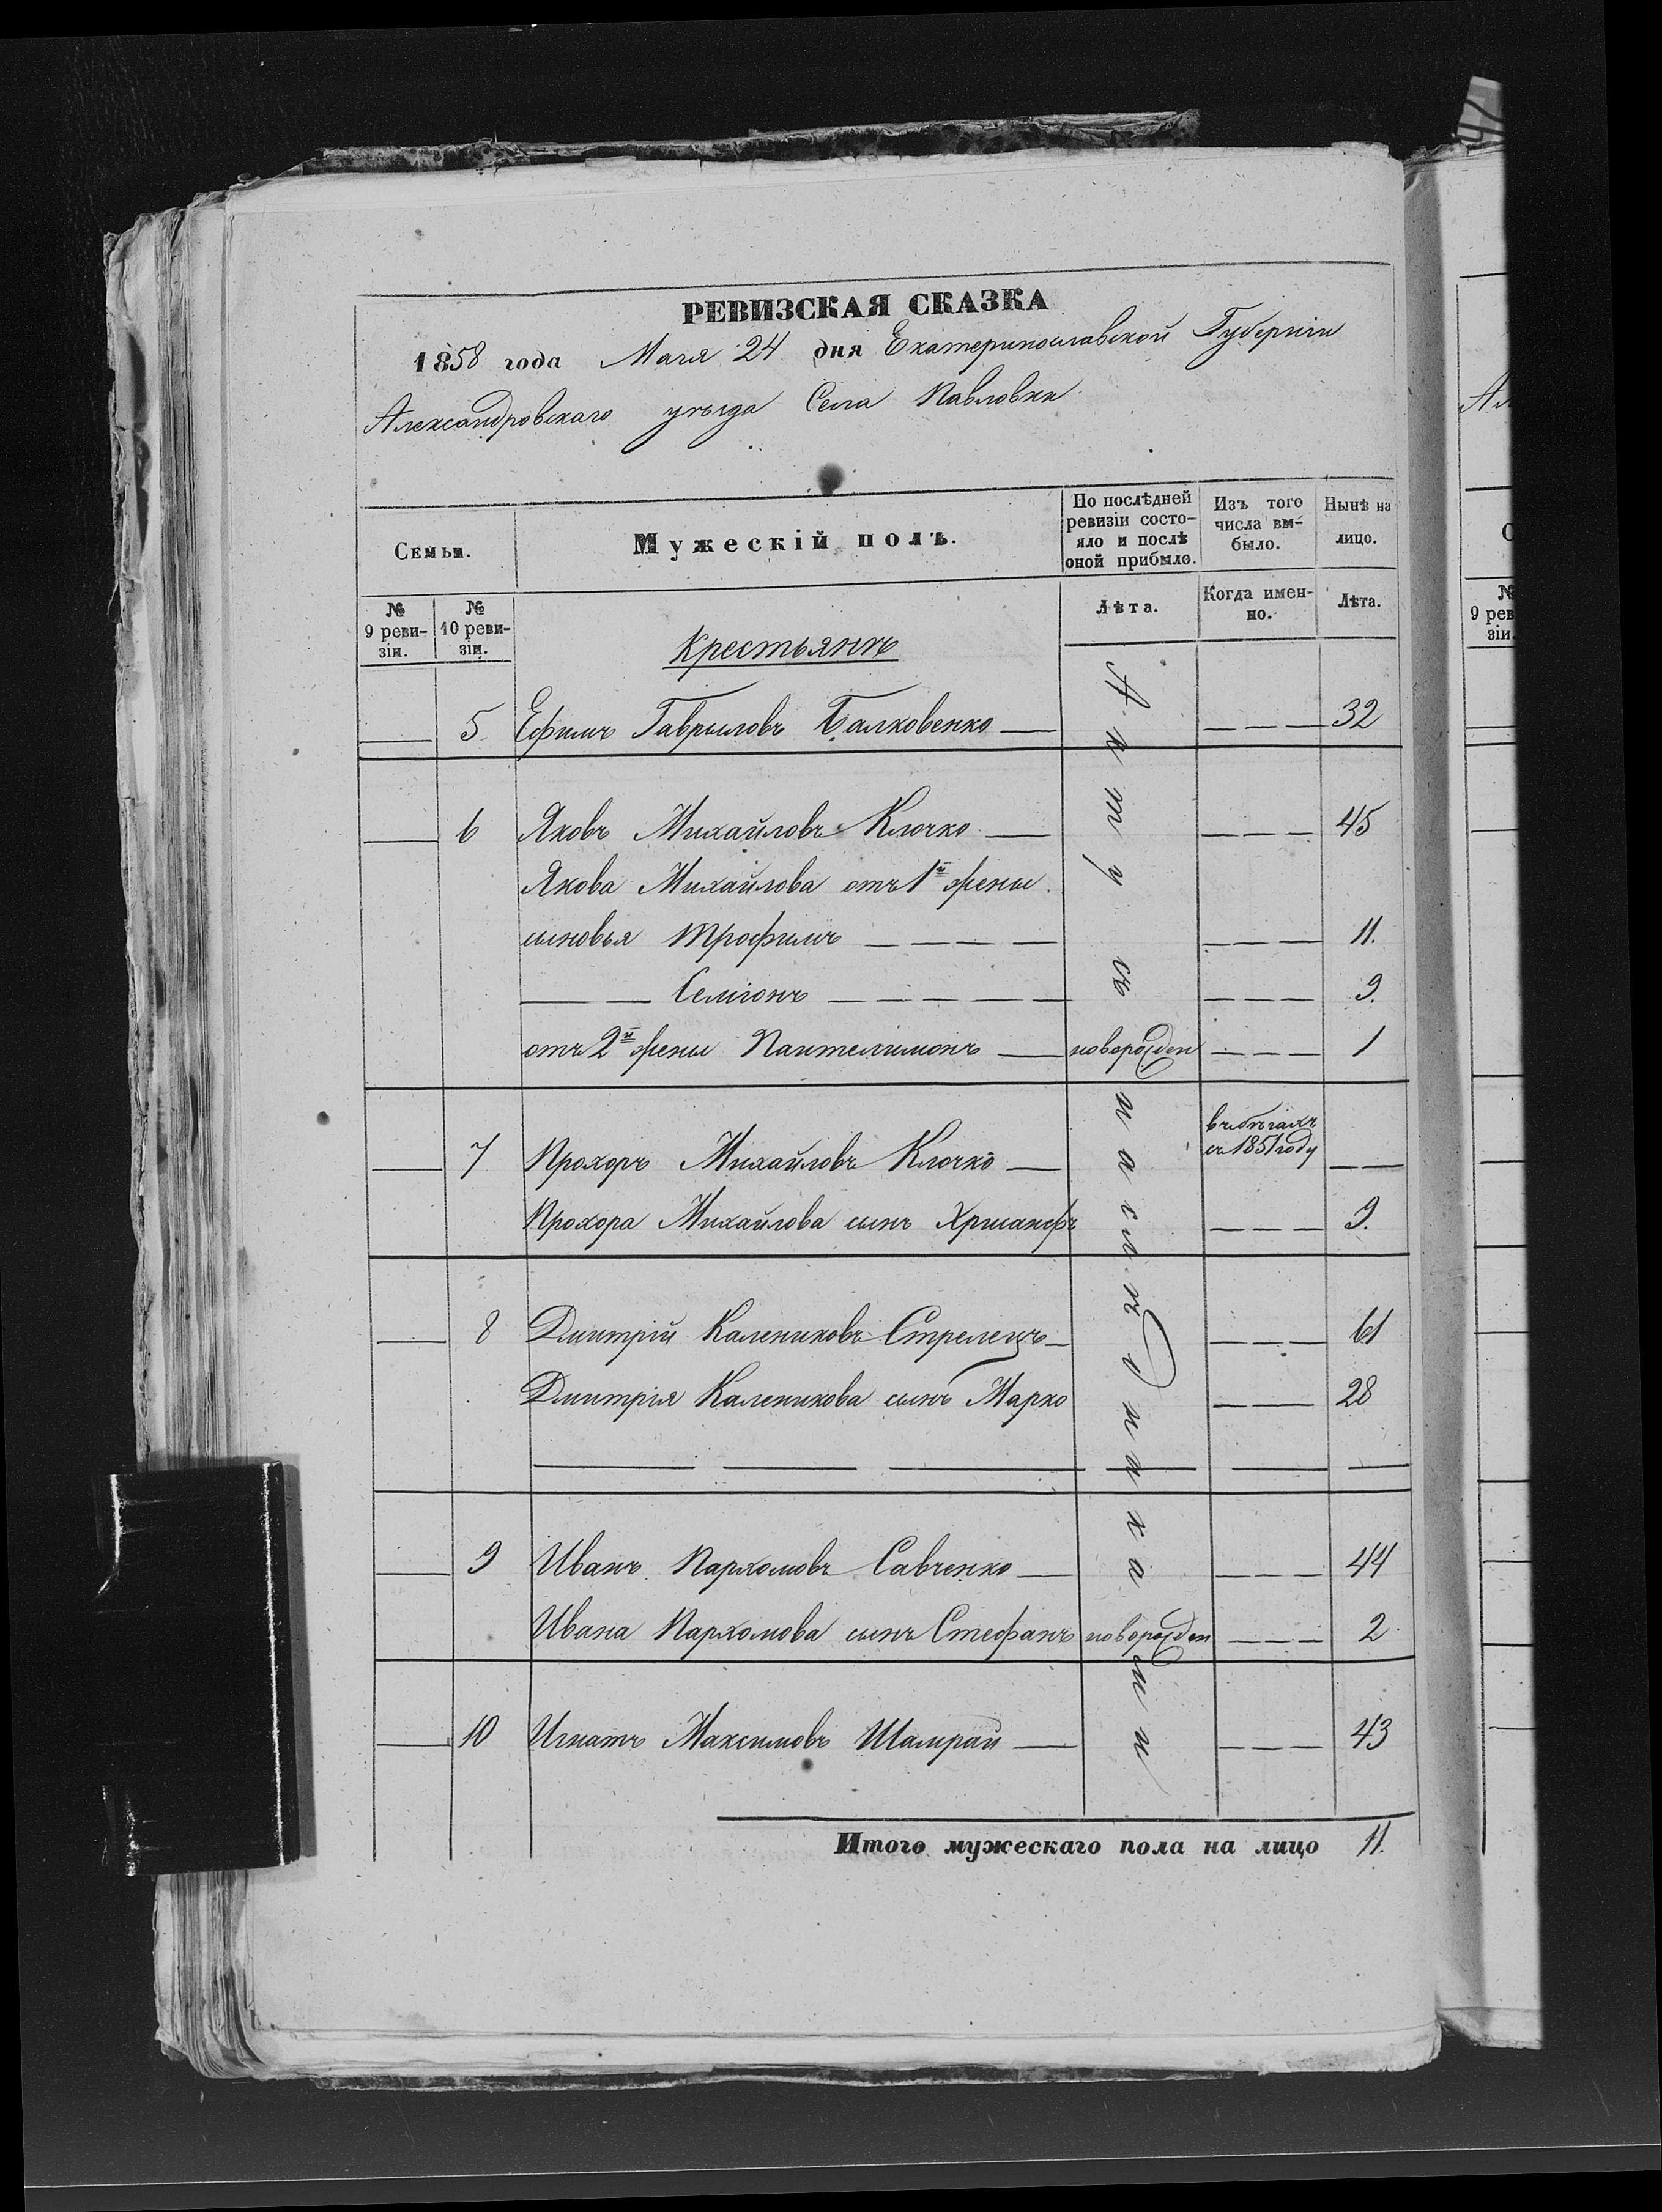 РЕВИЗСКАЯ СКАЗКА
1858 года Маія 24 дня Екатеринославской Губерніи
Александровскаго уѣзда Села Павловки
Семьи.
Мужескій полъ.
По послѣдней ревизіи состояло и послѣ оной прибыло.
Изъ того числа выбыло.
Нынѣ на лицо.
№ 9 ревизіи.
№ 10 ревизіи.
Крестьянъ
Лѣта.
Когда именно.
Лѣта.
5 Ефимъ Гаврыловъ Балковенко 32
6 Яковъ Михайловъ Клочко 45
Якова Михайлова отъ 1й жены
сыновья Трофимъ 11.
Семіонъ 9.
отъ 2й жены Пантелимонъ новорожден 1
7 Прохоръ Михайловъ Клочко въ бѣгахъ съ 1851 году
Прохора Михайлова сынъ Хрисанфъ 9.
8 Дмитрій Калениковъ Стрелецъ 61
Дмитрія Каленикова сынъ Марко 28
9 Иванъ Пархомовъ Савченко 44
Ивана Пархомова сынъ Стефанъ новорожден 2
10 Игнатъ Максимовъ Шамрай 43
наслѣдниками
Итого мужескаго пола на лицо 11.
№ 9 ревизіи.